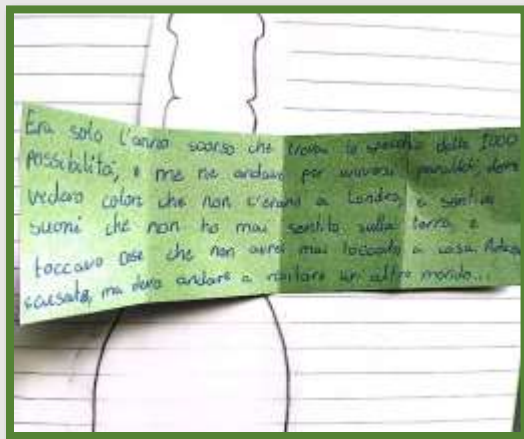 Era solo l'anno scorso che trovai lo specchio delle 1000
possibilità, e me ne andavo per universi paralleli, dove
vedevo colori che non c'erano a Londra, e sentivo
suoni che non ho mai sentito sulla terra, e
toccavo cose che non avrei mai toccato a casa.
scusate, ma devo andare a visitare un altro mondo...